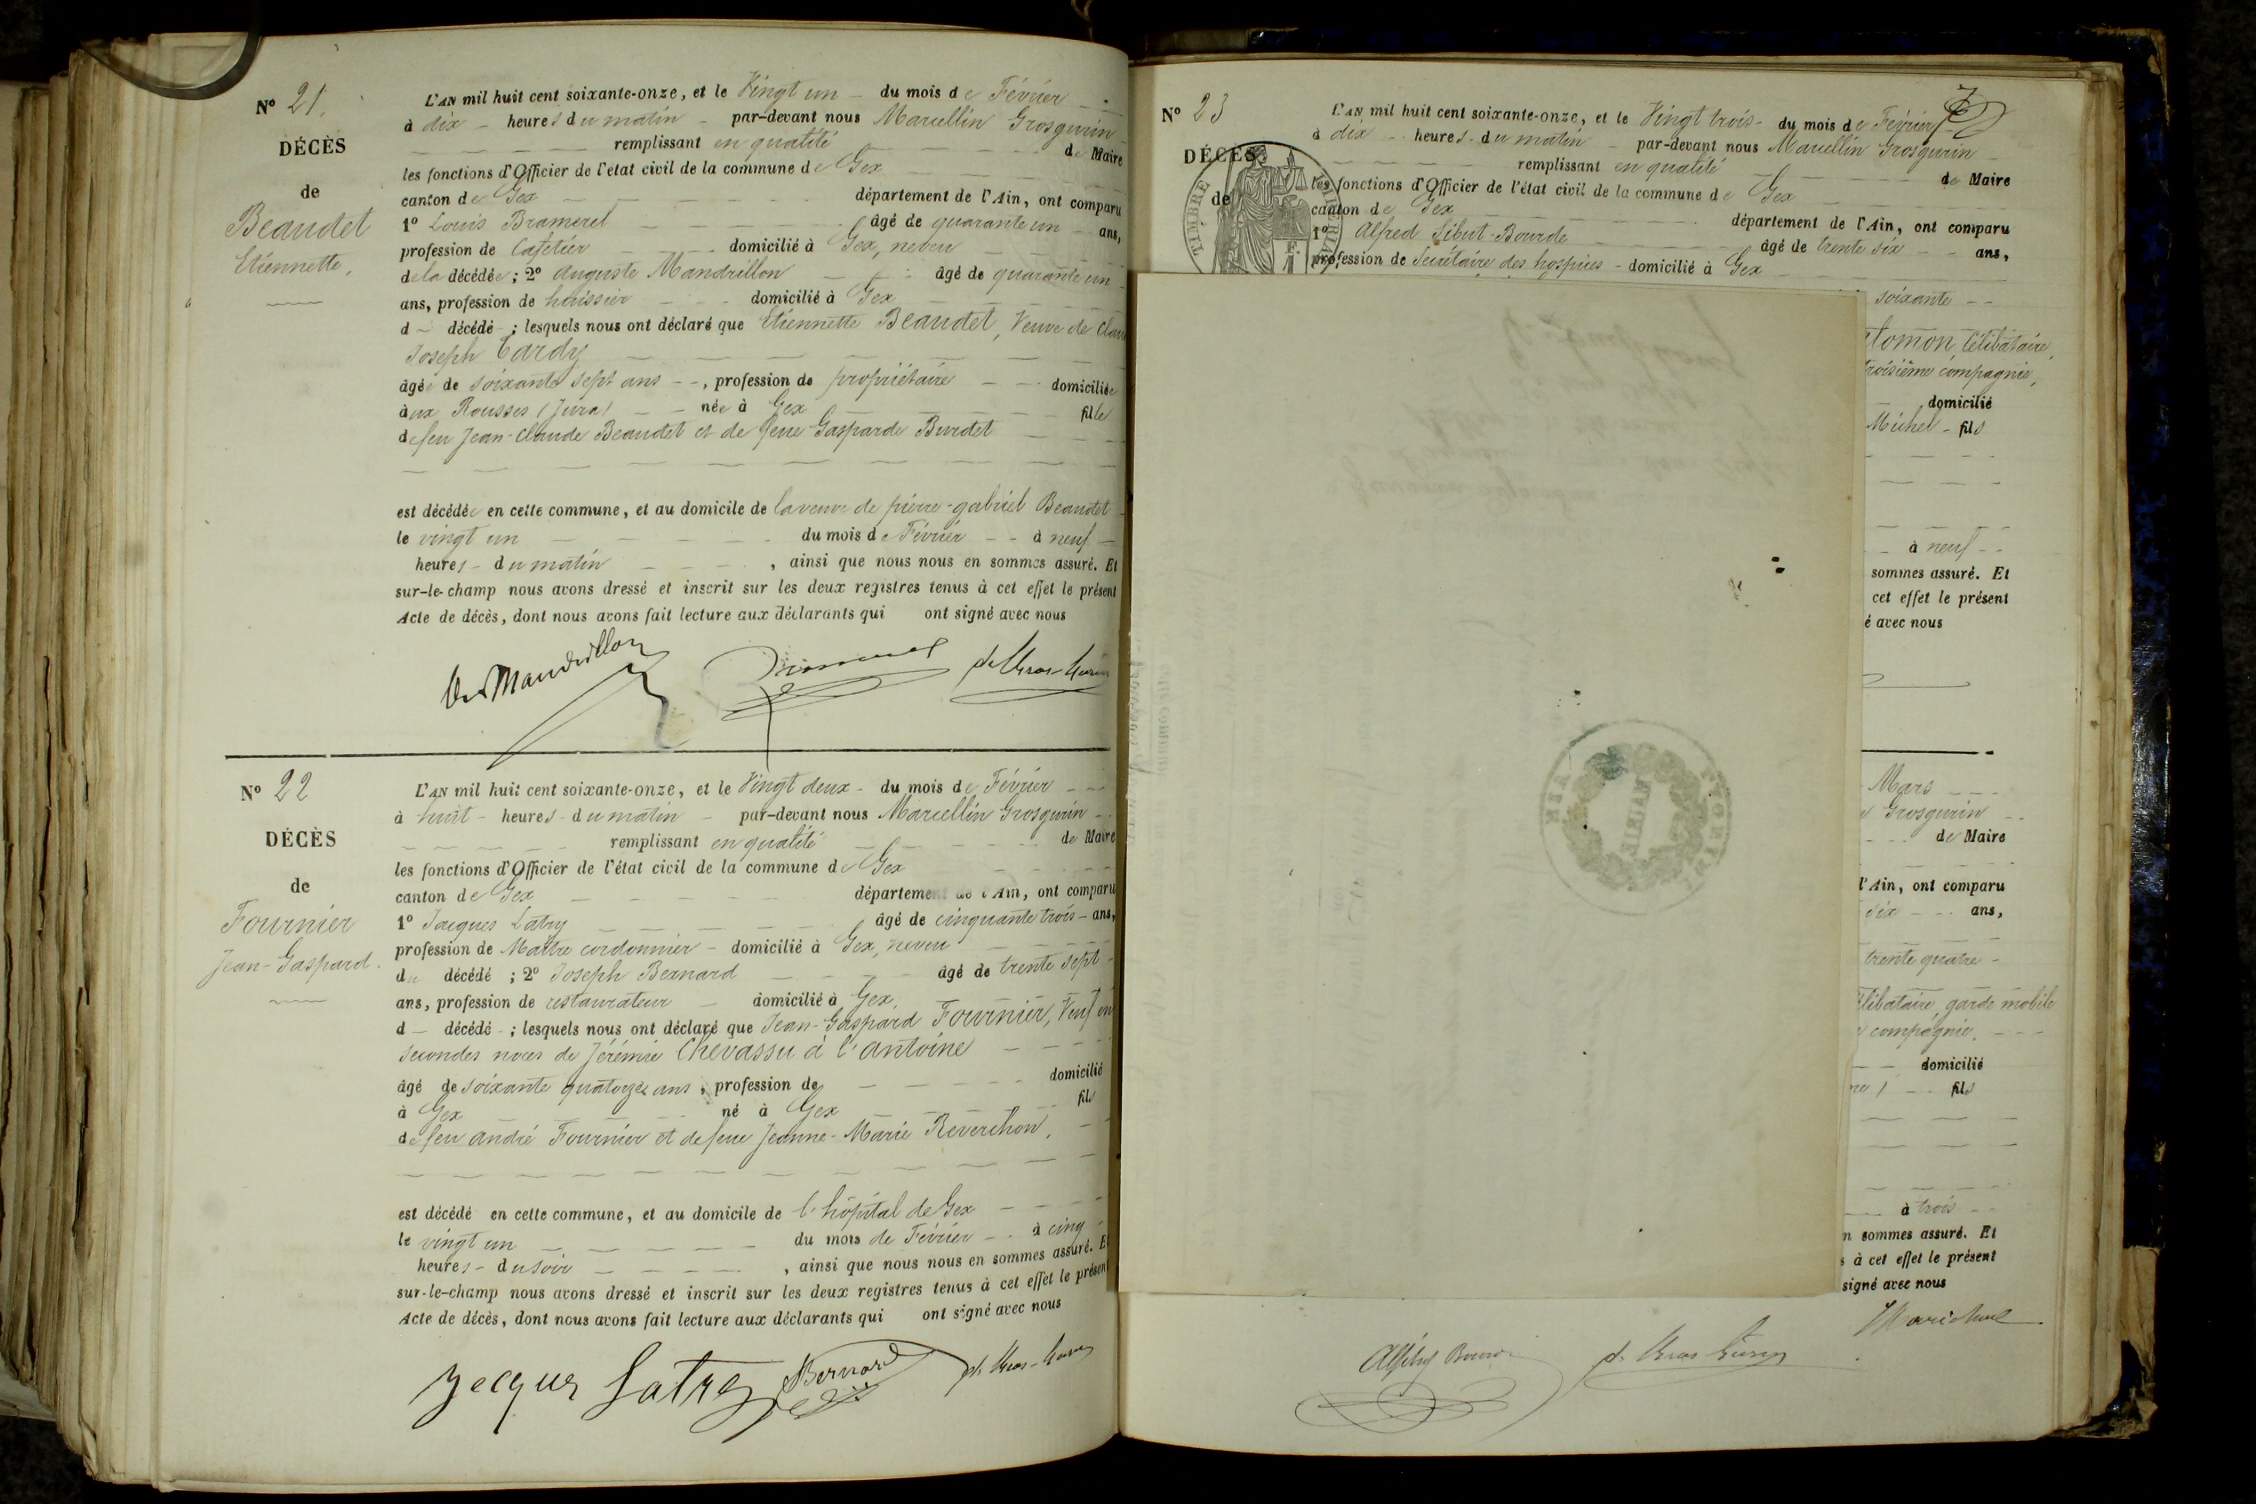 N° 21.
DÉCÈS
de
Beaudet
Etiennette,
L'AN mil huit cent soixante-onze, et le Vingt un du mois de Février
à dix heures du matin par-devant nous Marcellin Grosgurin
remplissant en qualité de Maire
les fonctions d'Officier de l'état civil de la commune de Gex
canton de Gex département de l'Ain, ont comparu
1° Louis Bramerel âgé de quarante un ans,
profession de Cafetier domicilié à Gex, neveu
de la décédée ; 2° auguste Mandrillon âgé de quarante un
ans, profession de huissier domicilié à Gex
d décédé ; lesquels nous ont déclaré que Etiennette Beaudet, Veuve de
Joseph Tardy
âgée de soixante sept ans, profession de propriétaire domiciliée
aux Rousses (Jura) née à Gex fille
de feu Jean-Claude Beaudet et de feue Gasparde Burdet
est décédée en cette commune, et au domicile de la veuve de pierre-gabriel Beaudet
le vingt un du mois de Février à neuf
heures du matin, ainsi que nous nous en sommes assuré. Et
sur-le-champ nous avons dressé et inscrit sur les deux registres tenus à cet effet le présent
Acte de décès, dont nous avons fait lecture aux déclarants qui ont signé avec nous
Mandrillon
N° 22
DÉCÈS
de
Fournier
Jean-Gaspard.
L'AN mil huit cent soixante-onze, et le Vingt deux du mois de Février
à huit heures du matin par-devant nous Marcellin Grosgurin
remplissant en qualité de Maire
les fonctions d'Officier de l'état civil de la commune de Gex
canton de Gex département de l'Ain, ont comparu
1° Jacques Latry âgé de cinquante trois ans,
profession de Maître cordonnier domicilié à Gex, neveu
du décédé ; 2° Joseph Bernard âgé de trente sept
ans, profession de restaurateur domicilié à Gex,
d décédé ; lesquels nous ont déclaré que Jean-Gaspard Fournier, Veuf en
secondes noces de Jérémie Chevassu à l'antoine
âgé de soixante quatorze ans, profession de domicilié
à Gex né à Gex fils
de feu andré Fournier et de feue Jeanne-Marie Reverchon,
est décédé en cette commune, et au domicile de l'hôpital de Gex
le vingt un du mois de Février à cinq
heures du soir, ainsi que nous nous en sommes assuré. Et
sur-le-champ nous avons dressé et inscrit sur les deux registres tenus à cet effet le présent
Acte de décès, dont nous avons fait lecture aux déclarants qui ont signé avec nous
Jacques Latry Bernard
N° 23
DÉCÈS
de
TIMBRE
L'AN mil huit cent soixante-onze, et le Vingt trois du mois de Février
à dix heures du matin par-devant nous Marcellin Grosgurin
remplissant en qualité de Maire
les fonctions d'Officier de l'état civil de la commune de Gex
canton de Gex département de l'Ain, ont comparu
1° Alfred Sibut-Bourde âgé de trente six ans,
profession de Secrétaire des hospices domicilié à Gex
soixante
lomon, Célibataire,
troisième compagnie,
domicilié
Michel fils
à neuf
sommes assuré. Et
cet effet le présent
é avec nous
MAIRIE
Mars
Grosgurin
de Maire
l'Ain, ont comparu
six ans,
trente quatre
élibataire, garde mobile
compagnie.
domicilié
fils
à trois
n sommes assuré. Et
s à cet effet le présent
signé avec nous